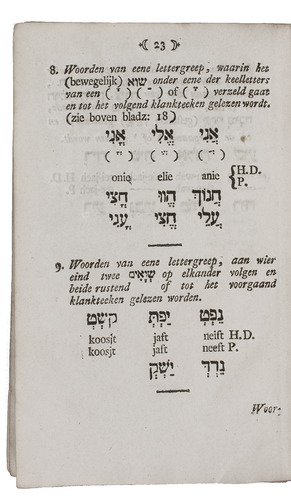 ( 23 )
8. Woorden van eene lettergreep, waarin het
(bewegelijk) שְׁוָא onder eene der keelletters
van een ( ֲ ) ( ֱ ) of ( ֳ ) verzeld gaat
en tot het volgend klankteeken gelezen wordt.
(zie boven bladz: 18)
אֲנִי אֱלִי אֳנִי
( ֲ ) ( ֱ ) ( ֳ )
onie elie anie {H.D.
P.
חֲנוֹךְ הֱווּ חֳצִי
עֲלֵי חֱצִי עֳנִי
9. Woorden van eene lettergreep, aan wier
eind twee שְׁוָאִים op elkander volgen en
beide rustend of tot het voorgaand
klankteeken gelezen worden.
נֵפְטְ יַפְתְּ קֹשְׁטְ
koosjt jaft neift H.D.
koosjt jaft neeft P.
נֵרְדְּ יַשְׁקְ
Woor-